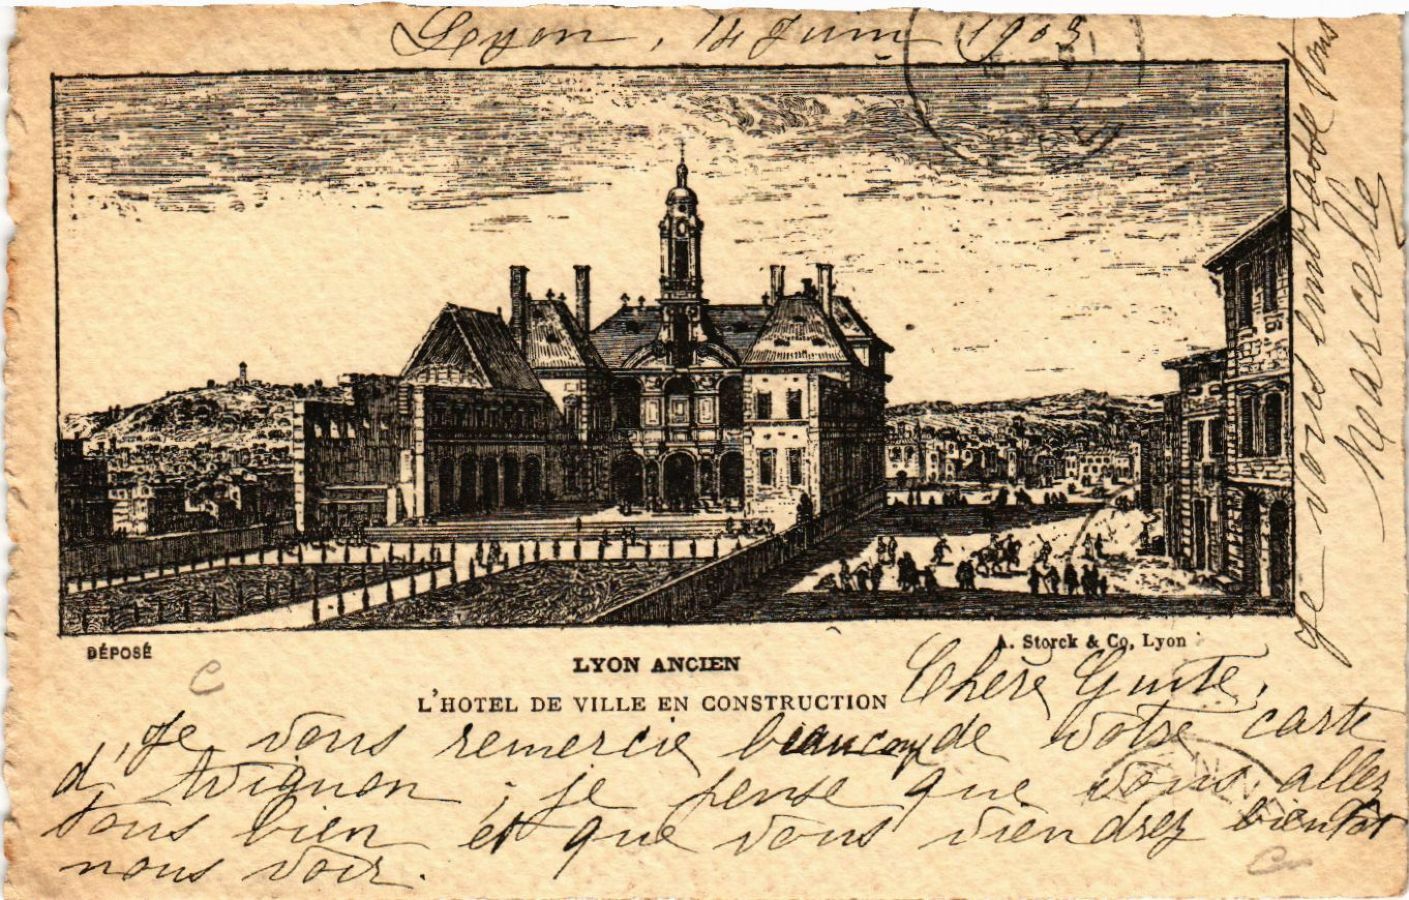 Lyon, 14 Juin 1903
DÉPOSÉ
A. Storck & Co, Lyon
LYON ANCIEN
L'HOTEL DE VILLE EN CONSTRUCTION
Chère Guite,
Je vous remercie beaucoup de votre carte
d'Avignon ; je pense que vous allez
tous bien et que vous viendrez bientôt
nous voir.
Je vous embrasse tous
Marcelle